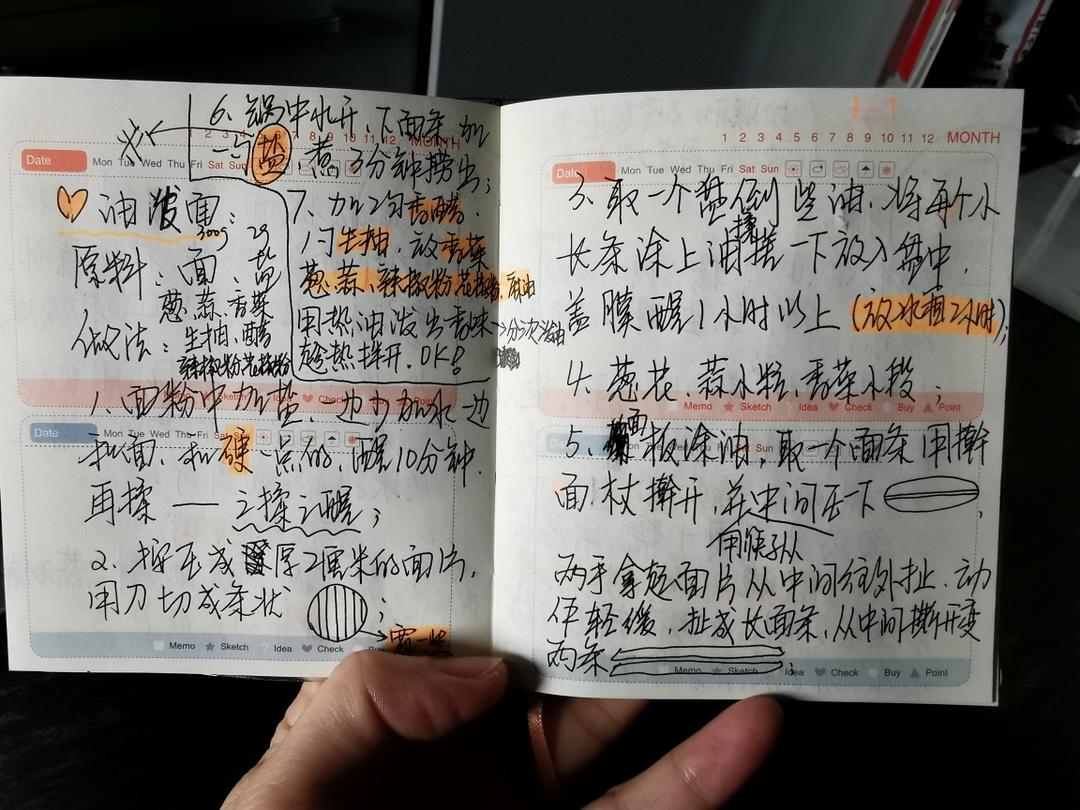 6、锅中水开，下面条，加
一勺盐 煮3分钟捞出；
1 2 3 4 5 6 7 8 9 10 11 12 MONTH
Date Mon Tue Wed Thu Fri Sat Sun
油泼面：
300g 2g
原料：面、盐
葱、蒜、香菜
生抽、醋
辣椒粉、花椒粉
做法：
7、加2勺香醋、
1勺生抽，放香菜
葱、蒜、辣椒粉、花椒粉、麻油
用热油泼出香味→分次浇油
趁热拌开，OK！
Memo Sketch Idea Check Buy Point
1、面粉中加盐，一边加水一边
Date Mon Tue Wed Thu Fri Sat Sun
和面，和硬一点的，醒10分钟，
再揉 —— 三揉三醒；
2、按压成厚2厘米的面片，
用刀切成条状；
→宽一些
Memo Sketch Idea Check Buy
1 2 3 4 5 6 7 8 9 10 11 12 MONTH
Date Mon Tue Wed Thu Fri Sat Sun
3、取一个盘倒些油，将每个小
长条涂上油搓一下放入盘中，
盖膜醒1小时以上（放冰箱2小时）；
4、葱花、蒜小粒、香菜小段；
Memo Sketch Idea Check Buy Point
Date Mon Tue Wed Thu Fri Sat Sun
5、面板涂油，取一个面条用擀
面杖擀开，在中间压一下；
用筷子纵
两手拿起面片从中间往外扯，动
作轻缓，扯成长面条，从中间撕开变
两条；
Memo Sketch Idea Check Buy Point